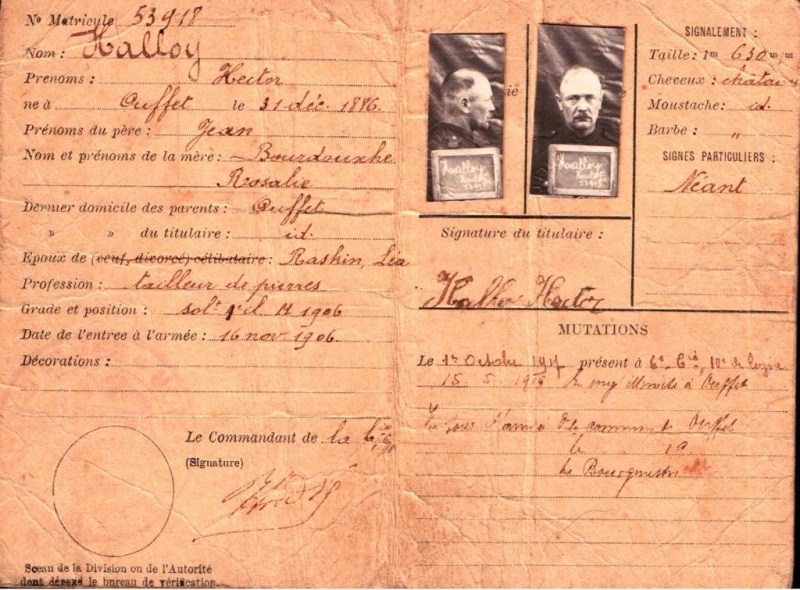 No Matricule 53918
Nom : Halloy
Prénoms : Hector
né à Ouffet le 31 déc. 1886.
Prénoms du père : Jean
Nom et prénoms de la mère : Bourdouxhe
Rosalie
Dernier domicile des parents : Ouffet
» » du titulaire : id.
Epoux de (veuf, divorcé) célibataire : Raskin, Léa
Profession : tailleur de pierres
Grade et position : sol. mil. 1906
Date de l'entree à l'armée : 16 nov. 1906.
Décorations :
Le Commandant de la
(Signature)
Sceau de la Division ou de l'Autorité
dont dépend le bureau de vérification.
Halloy
Hector
53918
Halloy
Hector
53918
Signature du titulaire :
Halloy Hector
SIGNALEMENT :
Taille : 1m 630 m/m
Cheveux : châtains
Moustache : id.
Barbe : "
SIGNES PARTICULIERS :
Néant
MUTATIONS
Le 1er Octobre 1917 présent à 6e Cie, 10e de ligne
15 5 1919 En congé illimité à Ouffet
la commune de Ouffet
le 19
Le Bourgmestre